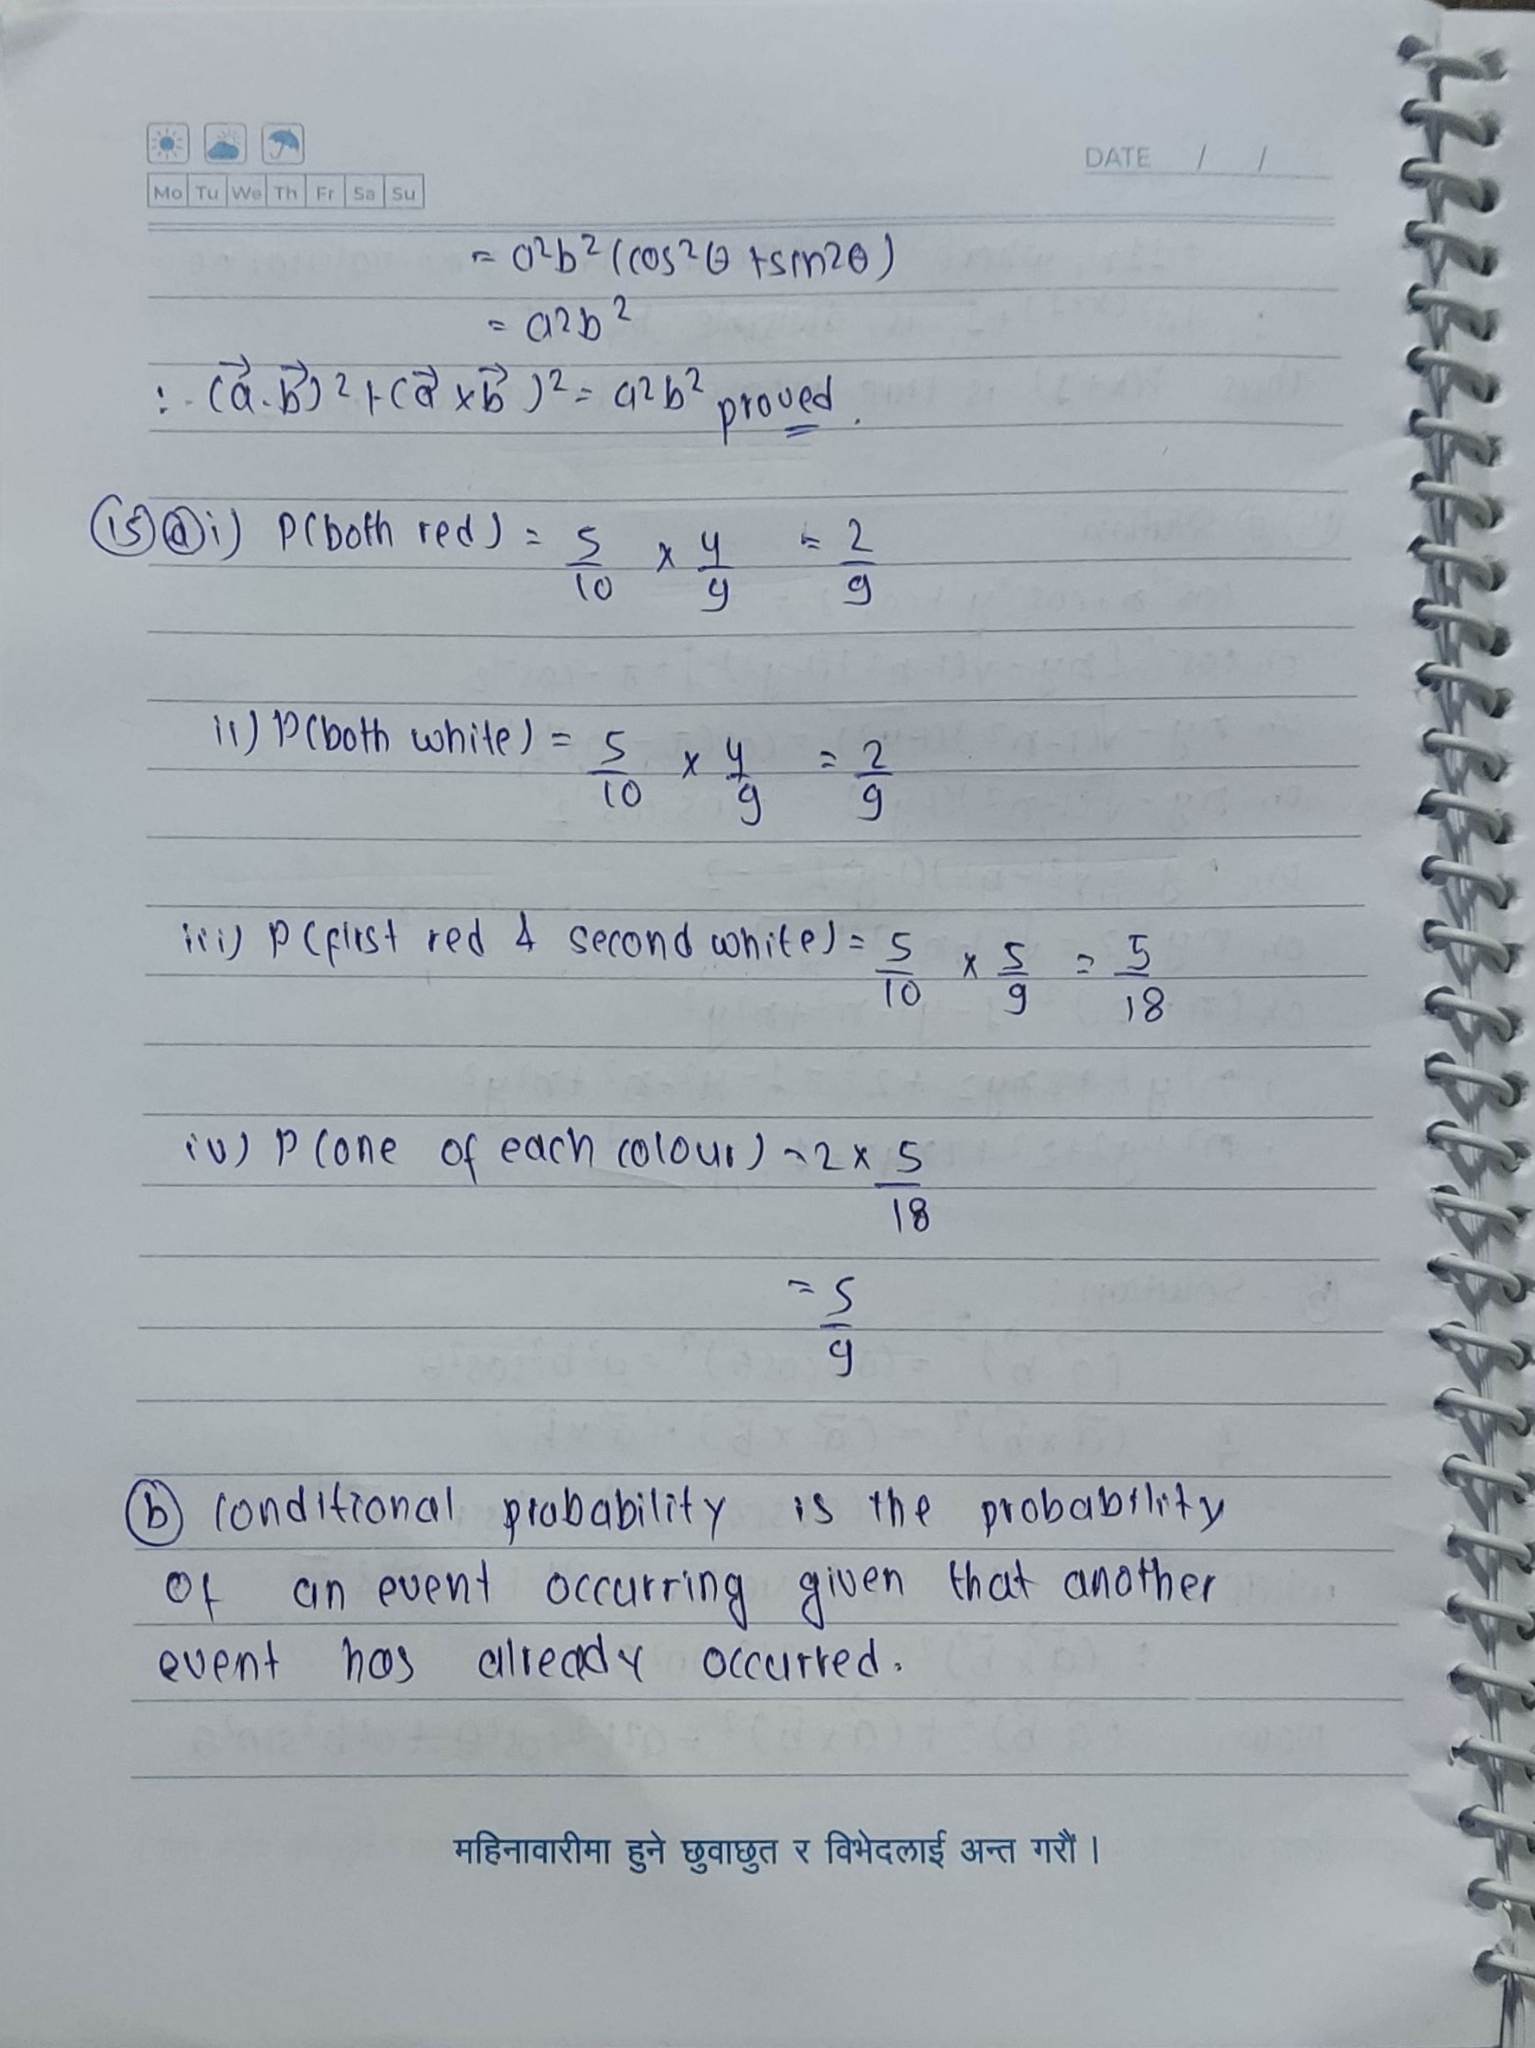 DATE / /
Mo Tu We Th Fr Sa Su
= a²b² (cos²θ + sin2θ)
= a2b²
∴ (a⃗.b⃗)² + (a⃗ × b⃗)² = a²b² proved.
15 a i) P(both red) = 5/10 × 4/9 = 2/9
ii) P(both white) = 5/10 × 4/9 = 2/9
iii) P(first red & second white) = 5/10 × 5/9 = 5/18
iv) P(one of each colour) = 2 × 5/18
= 5/9
b conditional probability is the probability
of an event occurring given that another
event has already occurred.
महिनावारीमा हुने छुवाछुत र विभेदलाई अन्त गरौं ।